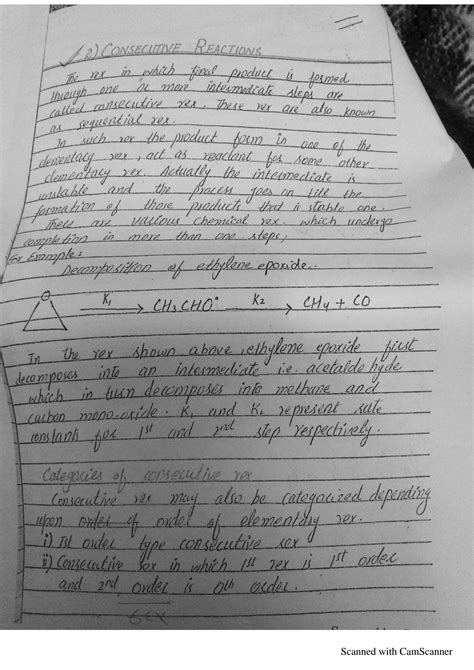 2) CONSECUTIVE REACTIONS
The rex in which final product is formed
through one or more intermediate steps are
called consecutive rex. These rex are also known
as sequential rex.
In such rex the product form in one of the
elementary rex, act as reactant for some other
elementary rex. Actually the intermediate is
unstable and the process goes on till the
formation of those products that is stable one.
There are various chemical rex. which undergo
completion in more than one steps,
For Example:
Decomposition of ethylene epoxide.
O K1 → CH3CHO* K2 → CH4 + CO
In the rex shown above, ethylene epoxide first
decomposes into an intermediate i.e. acetaldehyde
which in turn decomposes into methane and
carbon mono-oxide. K1 and K2 represent rate
constants for 1st and 2nd step respectively.
Categories of consecutive rex
Consecutive rex may also be categorized depending
upon order of order of elementary rex.
i) Ist order type consecutive rex
ii) Consecutive rex in which 1st rex is 1st order
and 2nd order is 0th order.
Scanned with CamScanner